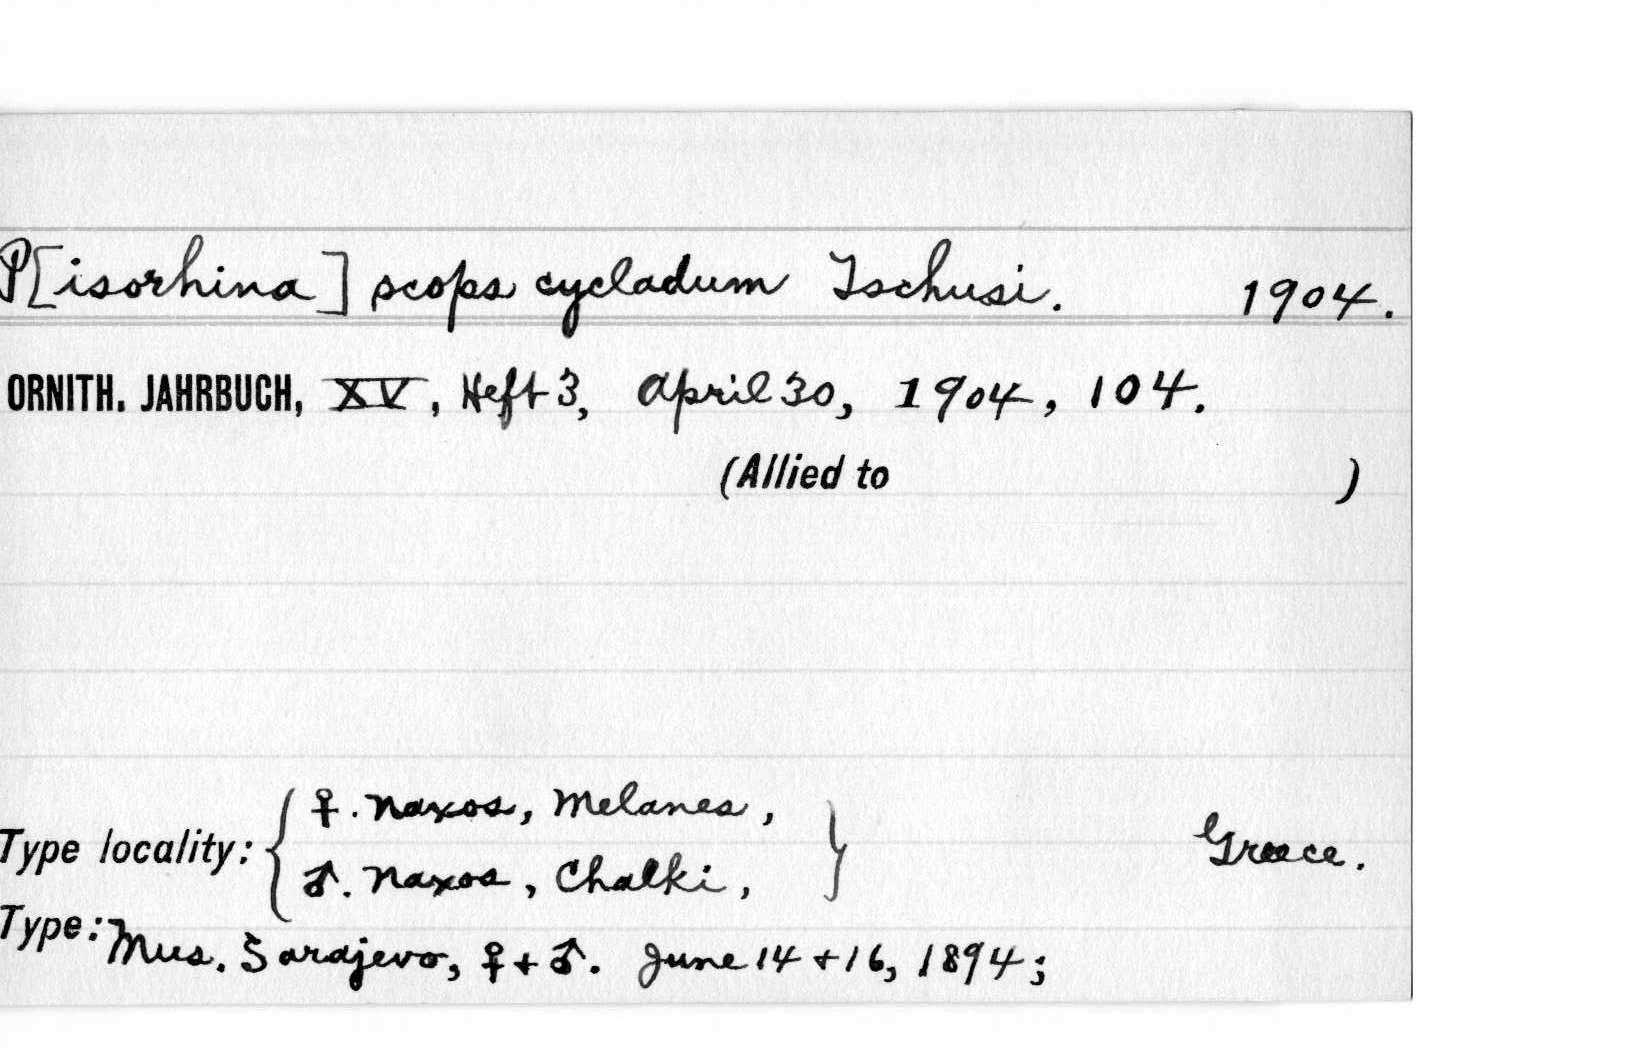 P[isorhina] scops cycladum Tschusi. 1904.
ORNITH. JAHRBUCH, XV, Heft 3, April 30, 1904, 104.
(Allied to )
♀. Naxos, Melanes,
Type locality: { } Greece.
♂. Naxos, Chalki,
Type: Mus. Sarajevo, ♀ + ♂. June 14 + 16, 1894;